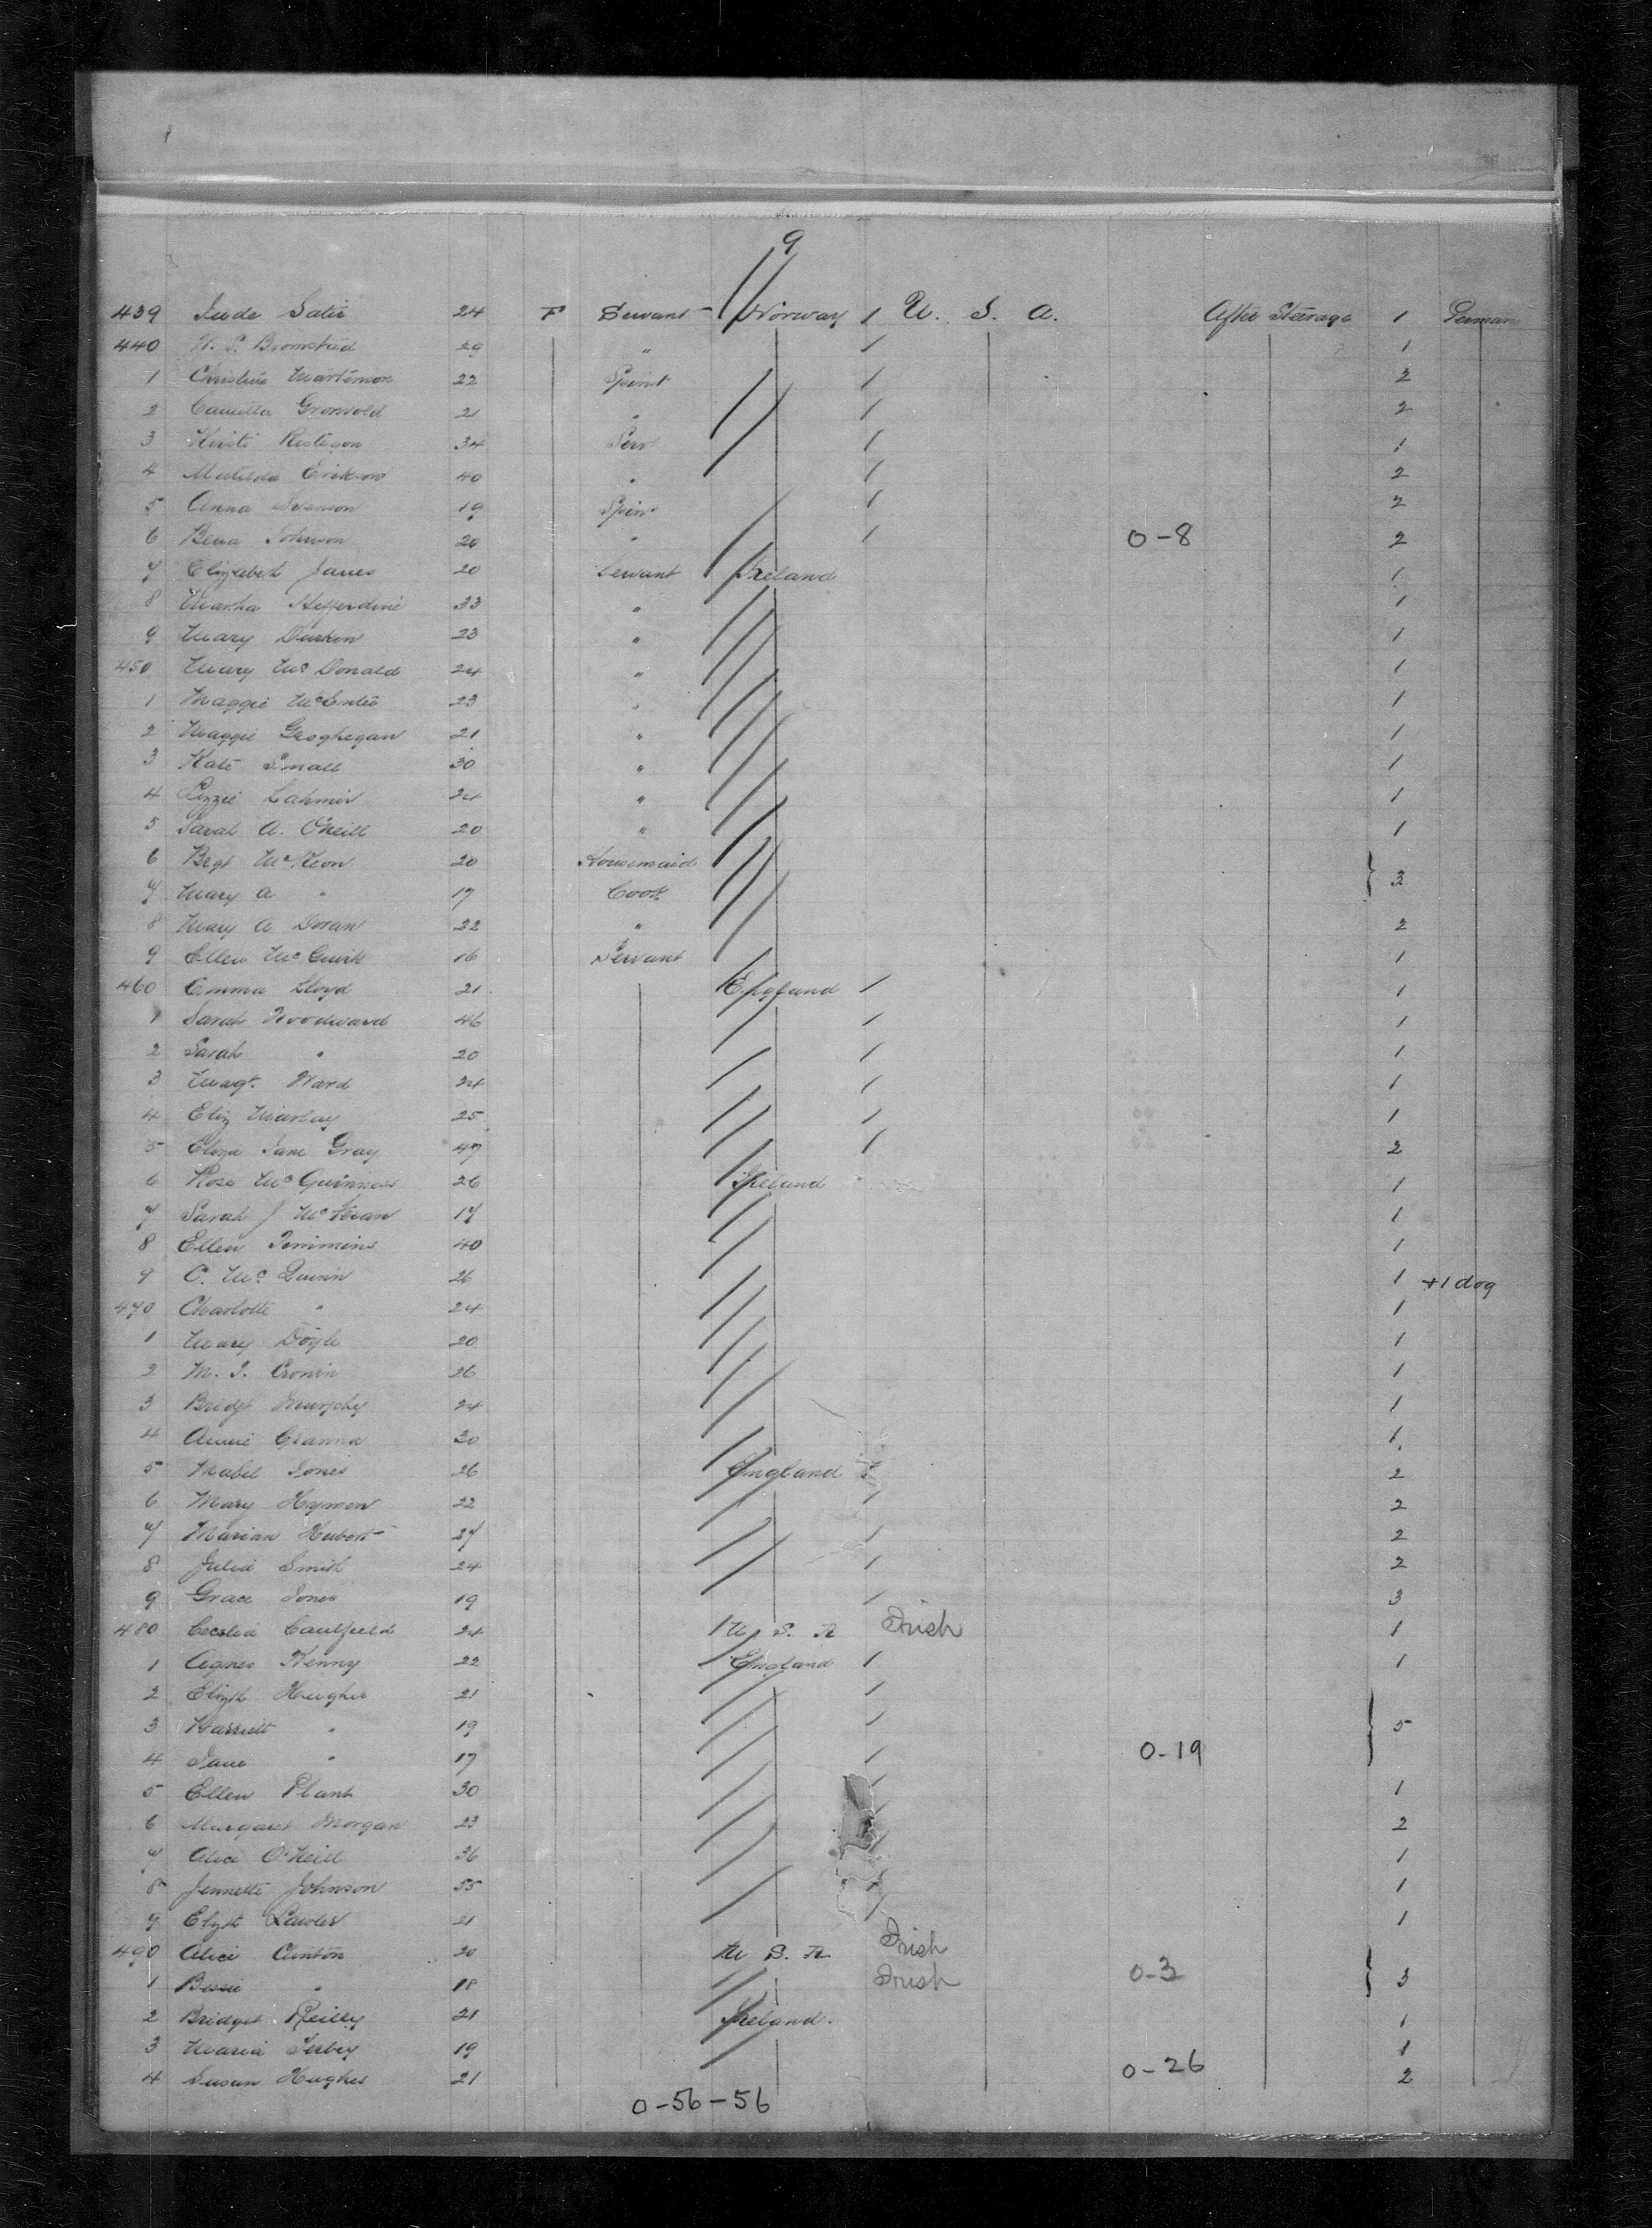 9
439 Sude Satir 24 F Servant Norway 1 U. S. A. After Steerage 1 Perman
440 Bromstad 29 " 1 1
1 Christine Martinson 22 Spinst 1 2
2 Camilla Gronvold 21 " 1 2
3 Kirsti 34 Serv 1 1
4 Matilda Erikson 40 " 1 2
5 Anna Svenson 19 Spin 1 2
6 Bena Johnson 20 " 1 0-8 2
7 Elizabeth Janes 20 Servant Ireland 1
8 Martha Hefferdine 33 " 1
9 Mary Durkin 23 " 1
450 Mary McDonald 24 " 1
1 Maggie McEntee 23 " 1
2 Maggie Geoghegan 21 " 1
3 Kate Small 30 " 1
4 Lizzie 24 " 1
5 Sarah A. O'Neill 20 " 1
6 Begt McKeon 20 Housemaid } 3
7 Mary A " 17 Cook
8 Mary A Doran 22 " 2
9 Ellen McGurk 16 Servant 1
460 Emma Lloyd 21 England 1 1
1 Sarah Woodward 46 1 1
2 Sarah " 20 1 1
3 Magt. Ward 24 1 1
4 Eliz 25 1 1
5 Eliza Jane Gray 47 1 2
6 Rose McGuinness 26 Ireland 1
7 Sarah J 17 1
8 Ellen Timmins 40 1
9 C. McQuinn 26 1 +1 dog
470 Charlotte " 24 1
1 Mary Doyle 20 1
2 Cronin 26 1
3 Bridgt Murphy 24 1
4 Annie 30 1
5 Mabel Jones 26 England 1 2
6 Mary Hymen 22 1 2
7 Marian Hubert 27 1 2
8 Julia Smith 24 1 2
9 Grace Jones 19 1 3
480 Cecelia Caulfield 24 U. S. A Irish 1
1 Agnes Kenny 22 England 1 1
2 Elizth Hughes 21 1
3 Harriett " 19 1 } 5
4 Jane " 17 1 0-19
5 Ellen Plant 30 1 1
6 Margaret Morgan 23 2
7 Alice O'Neill 36 1
8 Jennette Johnson 55 1
9 Elizt Lawler 21 1
490 Alice Clinton 20 U. S. A Irish
1 Bessie " 18 Irish 0-3 } 3
2 Bridget Reilly 21 Ireland. 1
3 Maria 19 1
4 Susan Hughes 21 0-26 2
0-56-56